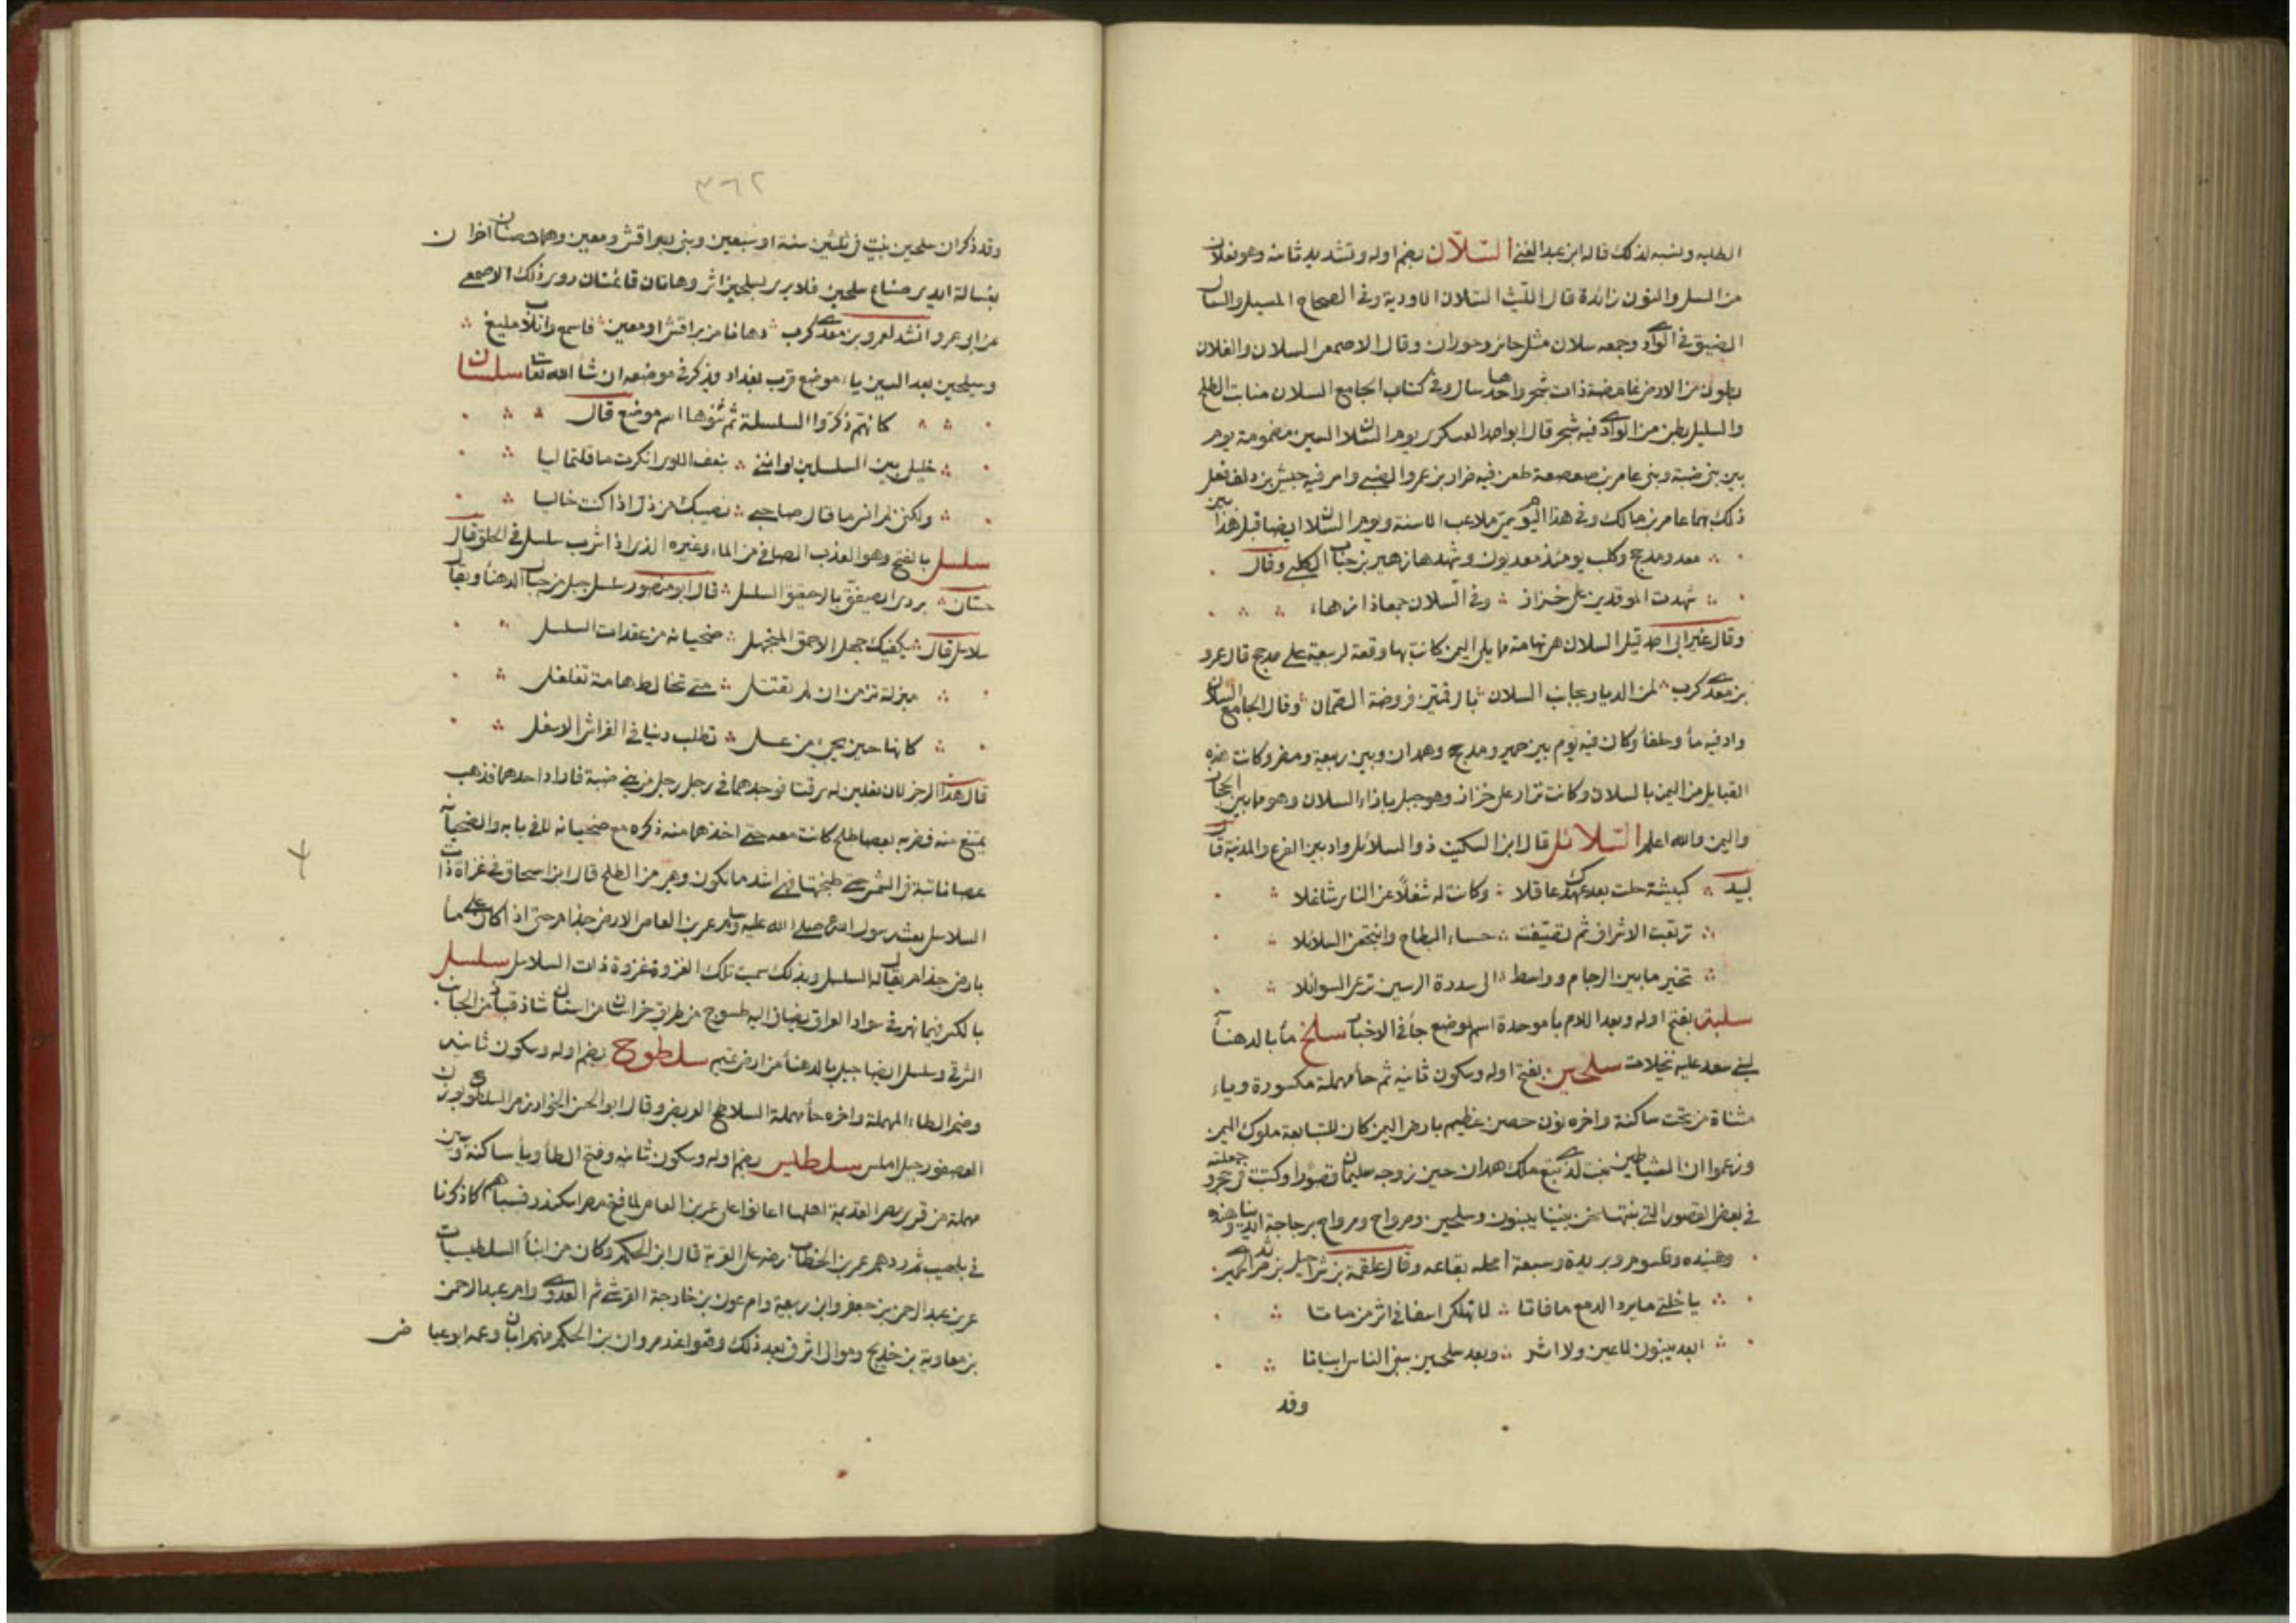 الطلبه ولنسبه لذلك قاله ابن عبد الغني السلان بضم اوله وتشديد ثانيه وهو فعلان
من السل والنون زائدة قال الليث السلان الاودية وفي الصحاح المسيل والسال
الضيق في الوادي وجمعه سلان مثل حائر وحوران وقال الاصمعي السلان والغلان
بطون من الارض غامضة ذات شجر واحدها سال وفي كتاب الجامع السلان منابت الطلح
والسليل بطن من الوادي فيه شجر قال ابو احمد العسكري يوم السلان السين مضمومة يوم
بين بني ضبة وبني عامر بن صعصعة طعن فيه ضرار بن عمرو الضبي واسر فيه حبيش بن دلف فعل
ذلك بهما عامر بن مالك وفي هذا اليوم سمي ملاعب الاسنة ويوم السلان ايضا قبل هذا بين
معد ومذحج وكلب يومئذ معديون وشهدها زهير بن جناب الكلبي وقال
شهدت الموقدين على خزاز وفي السلان جمعا ذا زهاء
وقال غير ابي احمد قيل السلان هي تهامة مما يلي اليمن كانت بها وقعة لربيعة على مذحج قال عمرو
بن معدي كرب لمن الديار بجانب السلان بالرقمتين فروضة الصمان وقال الجامع السلان
واد فيه مأ وحلفأ وكان فيه يوم بين حمير ومذحج وهمدان وبين ربيعة ومضر وكانت هذه
القبايل من اليمن بالسلان وكانت نزار على خزاز وهو جبل بازاء السلان وهو ما بين الحجاز
واليمن والله اعلم السلائل قال ابن السكيت ذو السلائل واد بين الفرع والمدينة قال
لبيد كبيشة حلت بعد عهدك عاقلا وكانت له شغلا عن الناس شاغلا
تربعت الاشراف ثم تصيفت حساء البطاح وانتجعن السلائلا
تخير ما بين الرجام وواسط الى سدرة الرسين ترعى السوائلا
سلبة بفتح اوله وبعد اللام بأ موحدة اسم لموضع جأ في الاخبار سلح مأ بالدهنأ
لبني سعد عليه نخيلات سلحين بفتح اوله وسكون ثانيه ثم حأ مهملة مكسورة وياء
مثناة من تحت ساكنة واخره نون حصن عظيم بارض اليمن كان للتبابعة ملوك اليمن
وزعموا ان الشياطين بنت لذي تبع ملك همدان حين زوجه سليمان قصورا وكتبت في حجر وجعلته
في بعض القصور التي بنتها نحن بنينا بينون وسلحين ومرواح ومرواح برجاجة ايدينا وهنده
وهنيده وقلسوم وبريدة وسبعة امحله بقاعه وقال علقمة بن شراحيل بن مرثد الحميري
يا خلتي ما يرد الدمع ما فاتا لا تهلكي اسفا في اثر من ماتا
ابعد بينون لا عين ولا اثر وبعد سلحين يبني الناس ابياتا
وقد
٣٦٢
وقد ذكر ان سلحين بنيت في ثلثين سنة او سبعين وبنى براقش ومعين وهما حصنان اخران
بغسالة ايدي صناع سلحين فلا يرى لسلحين اثر وهاتان قائمتان روى ذلك الاصمعي
عن ابي عمرو وانشد لعمرو بن معدي كرب دعانا من براقش او معين فاسمع واتلأب مليع
وسيلحين بعد السين ياء موضع قرب بغداد يذكر في موضعه ان شأ الله تعالى سلسلان
كانهم ذكروا السلسلة ثم ثنوها اسم موضع قال
خليلي بين السلسلين لو انني بنعف اللوى انكرت ما قلتما ليا
ولكنني لم انس ما قال صاحبي نصيبك من ذل اذا كنت خاليا
سلسل بالفتح وهو العذب الصافي من الماء وغيره الذي اذا شرب سلسل في الحلق قال
حسان بردى يصفق بالرحيق السلسل قال ابو منصور سلسل جبل من جبال الدهنأ ويقال
سلاسل قال يكفيك جهل الاحمق المنجهل ضحيانة من عقدات السلسل
مبزلة تزمن ان لم تقتل حتى تخالط هامة تغلغل
كانها حين يجي من عسل تطلب دنيا في الفراش الاسفل
قال هذا الرجز لان نعلين له سرقتا فوجدهما في رجل رجل من بني ضبة فاراد اخذهما فذهب
يمتنع منه فضربه بعصا طلح كانت معه حتى اخذهما منه ذكره مع ضحيانة للافي بابه والضحيانه
عصا نابتة في الشمس حتى طبختها فهي اشد ما تكون وهي من الطلح قال ابن اسحاق في غزاة ذات
السلاسل بعث رسول الله صلى الله عليه وسلم عمرو بن العاص الارض جذام حتى اذا كان على مأ
بارض جذام يقال له السلسل وبذلك سميت تلك الغزوة غزوة ذات السلاسل سلسل
بالكسر فيهما نهر في سواد العراق يضاف اليه طسوج من طريق خراسان من استان شاذ قباذ من الجانب
الشرقي وسلسل ايضا جبل بالدهنأ من ارض تميم سلطوح بضم اوله وسكون ثانيه
وضم الطاء المهملة واخره حأ مهملة السلاطح العريض وقال ابو الحسن الخوارزمي السلطوح بوزن
العصفور جبل املس سلطيس بضم اوله وسكون ثانيه وفتح الطأ ويأ ساكنة وسين
مهملة من قرى مصر القديمة اهلها اعانوا على عمرو بن العاص لما فتح مصر اسكندر فسباهم كما ذكرنا
في بلهيب ثم ردهم عمر بن الخطاب رضه على القرية قال ابن الحكم وكان من ابنأ السلطيسيات
عمر بن عبد الرحمن بن جعفر وابن ربيعة وام عون بن خارجة القرشي ثم العدوي وام عبد الرحمن
بن معاوية بن خديج وموالي اشرف بعد ذلك وقعوا عند مروان بن الحكم منهم ابان وعمه ابو عياض